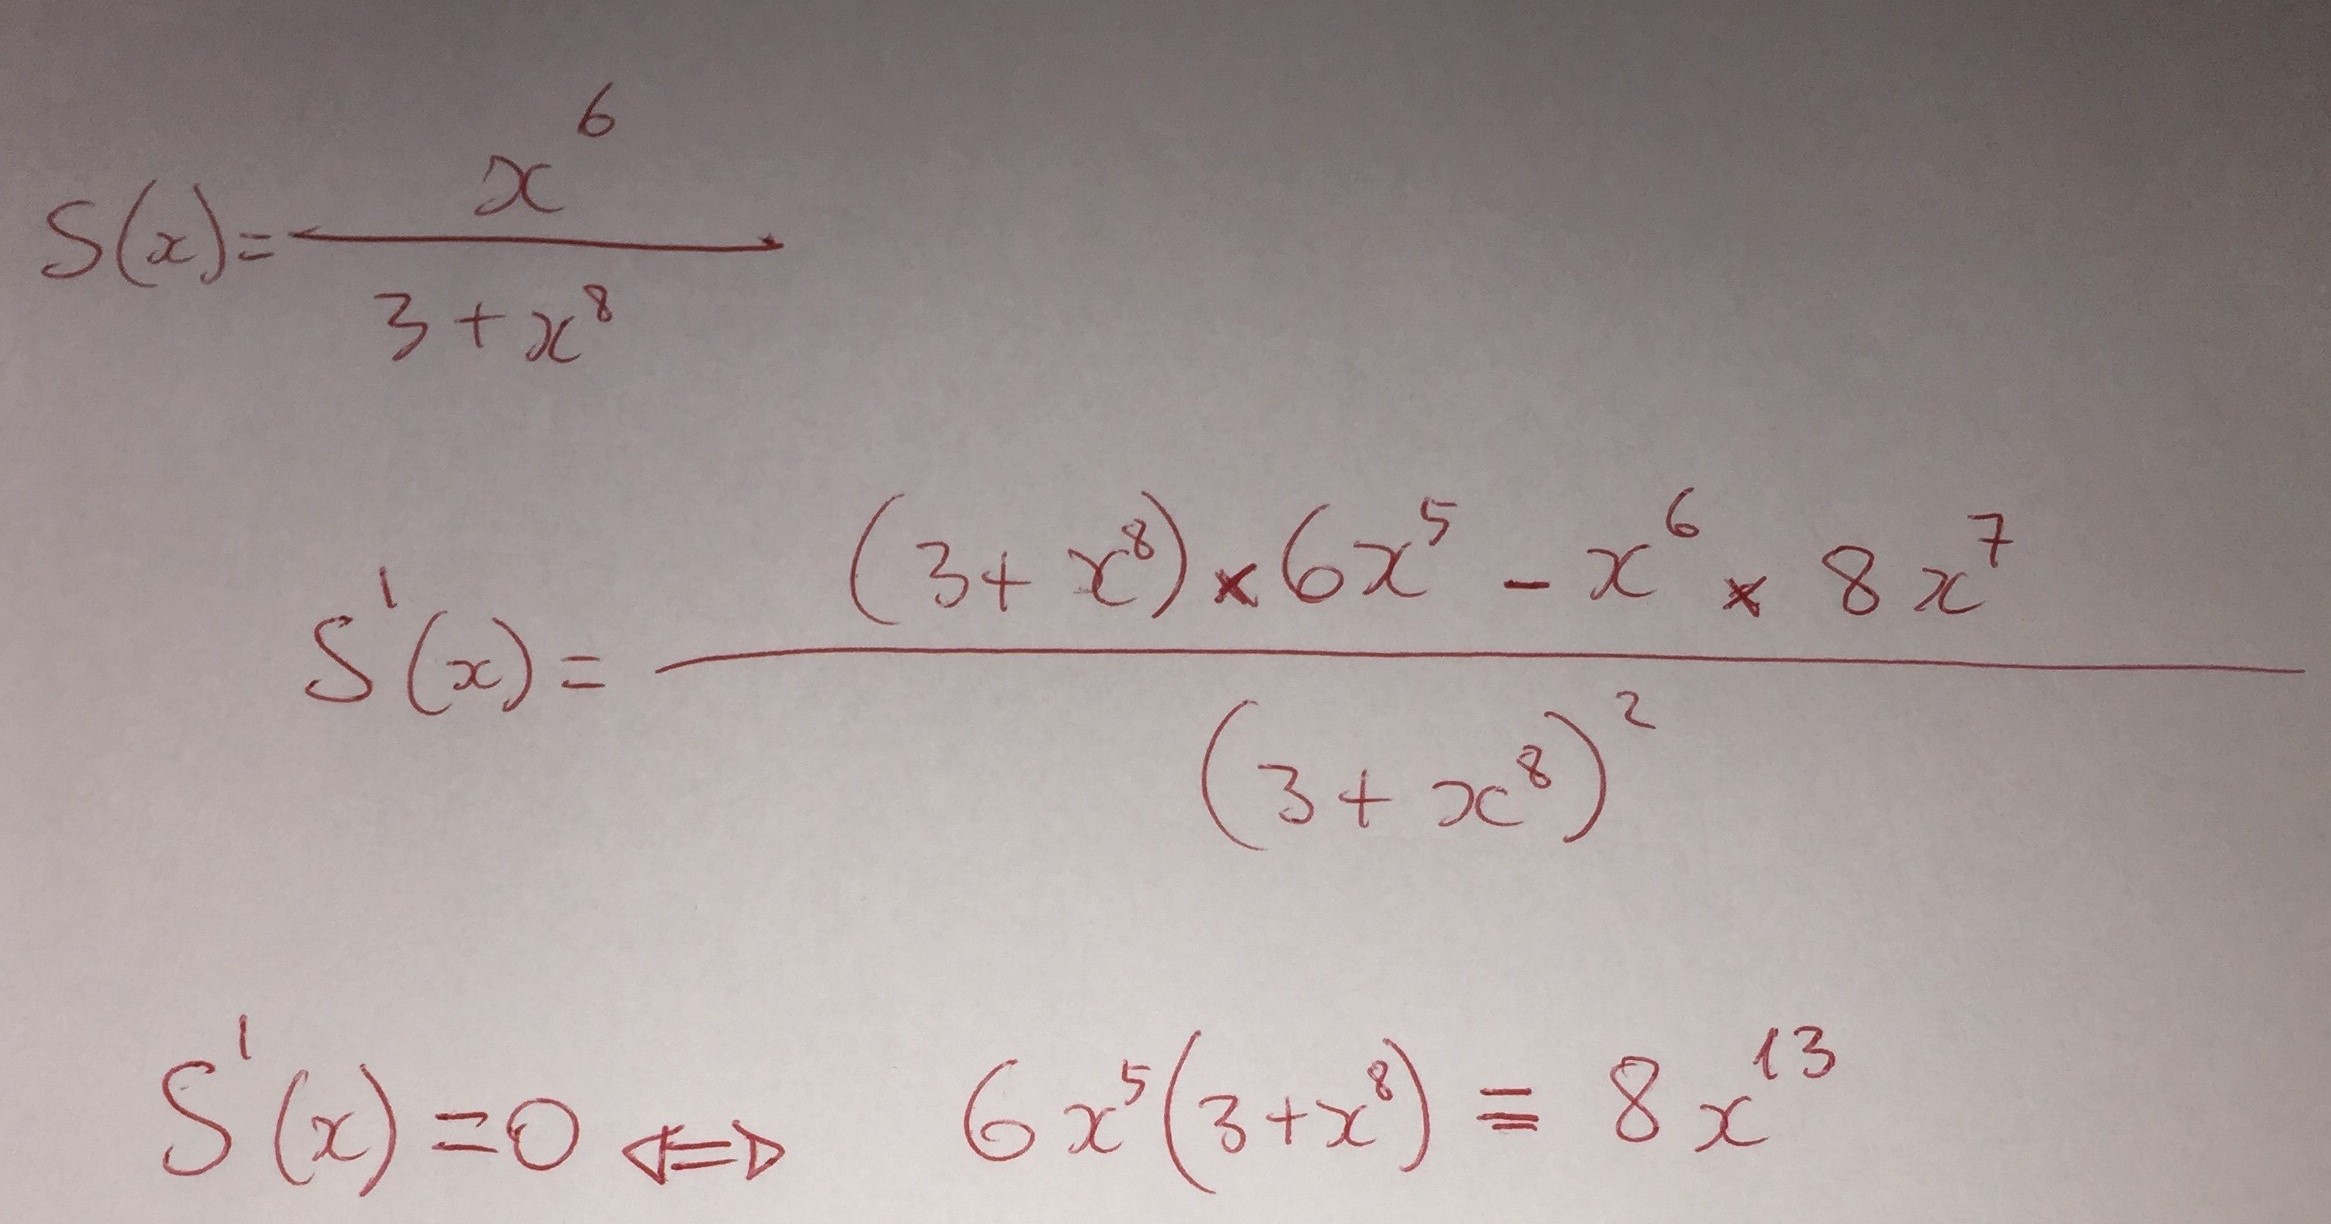 S(x) = x^6 / (3 + x^8)
S'(x) = ((3 + x^8) × 6x^5 − x^6 × 8x^7) / (3 + x^8)^2
S'(x) = 0 ⇔ 6x^5(3 + x^8) = 8x^13